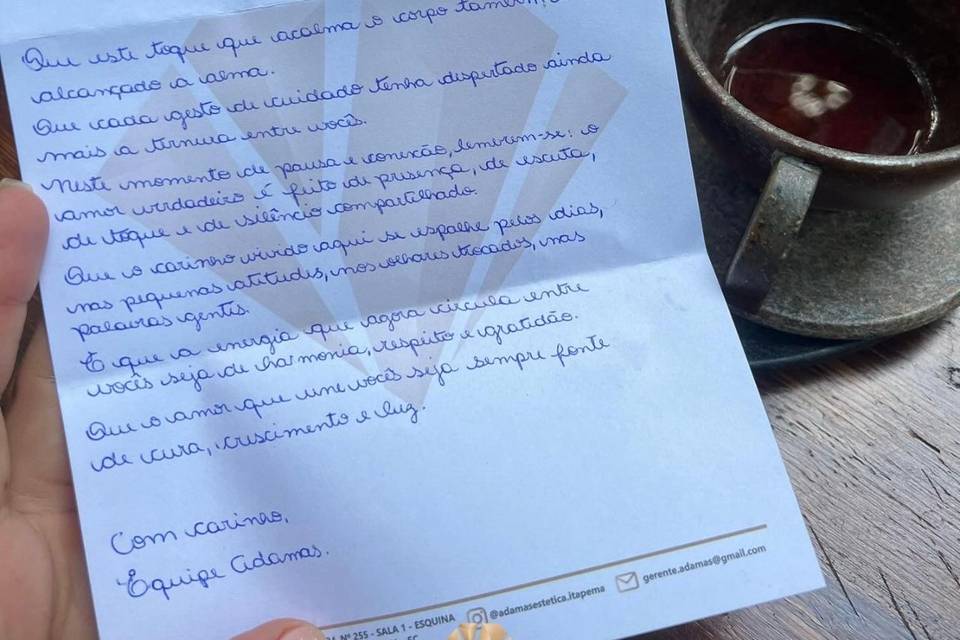 Que este toque que acalma o corpo também
alcançado a alma.
Que cada gesto de cuidado tenha despertado ainda
mais a ternura entre vocês.
Neste momento de pausa e conexão, lembrem-se: o
amor verdadeiro é feito de presença, de escuta,
de toque e de silêncio compartilhado.
Que o carinho vivido aqui se espalhe pelos dias,
nas pequenas atitudes, nos olhares trocados, nas
palavras gentis.
E que a energia que agora circula entre
vocês seja de harmonia, respeito e gratidão.
Que o amor que une vocês seja sempre fonte
de cura, crescimento e luz.
Com carinho,
Equipe Adamas.
Nº 255 - SALA 1 - ESQUINA @adamasestetica.itapema gerente.adamas@gmail.com